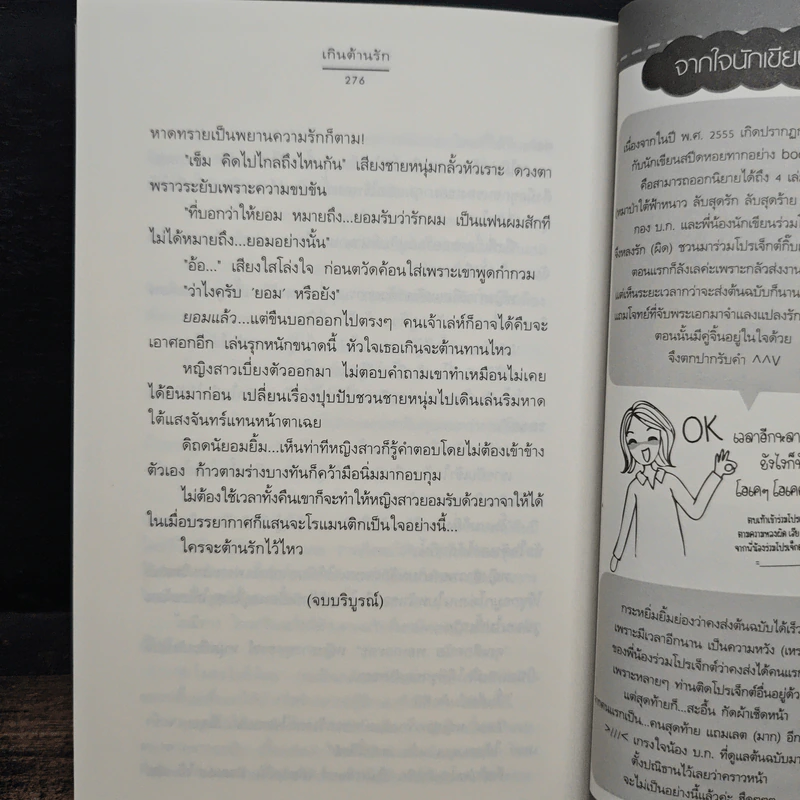 เกินต้านรัก
276
หาดทรายเป็นพยานความรักก็ตาม!
"เข็ม คิดไปไกลถึงไหนกัน" เสียงชายหนุ่มกลั้วหัวเราะ ดวงตา
พราวระยับเพราะความขบขัน
"ที่บอกว่าให้ยอม หมายถึง...ยอมรับว่ารักผม เป็นแฟนผมสักที
ไม่ได้หมายถึง...ยอมอย่างนั้น"
"อ้อ..." เสียงใสโล่งใจ ก่อนตวัดค้อนใส่เพราะเขาพูดกำกวม
"ว่าไงครับ 'ยอม' หรือยัง"
ยอมแล้ว...แต่ขืนบอกออกไปตรงๆ คนเจ้าเล่ห์ก็อาจได้คืบจะ
เอาศอกอีก เล่นรุกหนักขนาดนี้ หัวใจเธอเกินจะต้านทานไหว
หญิงสาวเบี่ยงตัวออกมา ไม่ตอบคำถามเขาทำเหมือนไม่เคย
ได้ยินมาก่อน เปลี่ยนเรื่องปุบปับชวนชายหนุ่มไปเดินเล่นริมหาด
ใต้แสงจันทร์แทนหน้าตาเฉย
ดิถดนัยอมยิ้ม...เห็นท่าทีหญิงสาวก็รู้คำตอบโดยไม่ต้องเข้าข้าง
ตัวเอง ก้าวตามร่างบางทันก็คว้ามือนิ่มมากอบกุม
ไม่ต้องใช้เวลาทั้งคืนเขาก็จะทำให้หญิงสาวยอมรับด้วยวาจาให้ได้
ในเมื่อบรรยากาศก็แสนจะโรแมนติกเป็นใจอย่างนี้...
ใครจะต้านรักไว้ไหว
(จบบริบูรณ์)
จากใจนักเขียน
เนื่องจากในปี พ.ศ. 2555 เกิดปรากฏ
กับนักเขียนสปีดหอยทากอย่าง
คือสามารถออกนิยายได้ถึง 4
ฟ้าหนาว ลับสุดรัก ลับสุดร้าย
กอง บ.ก. และพี่น้องนักเขียนร่วม
รัก (ผิด) ชวนมาร่วมโปรเจ็กต์
ตอนแรกก็ลังเลค่ะเพราะกลัวส่งงาน
แต่เห็นระยะเวลากว่าจะส่งต้นฉบับก็นาน
แถมโจทย์ที่จับพระเอกมาจำแลงแปลงรัก
ตอนนั้นมีคู่จิ้นอยู่ในใจด้วย
จึงตกปากรับคำ ^^V
OK
เวลาอีกหลาย
ยังไงก็
โอเคๆ
กระหยิ่มยิ้มย่องว่าคงส่งต้นฉบับได้เร็ว
เพราะมีเวลาอีกนาน เป็นความหวัง
ของพี่น้องร่วมโปรเจ็กต์ว่าคงส่งได้คนแรก
เพราะหลายๆ ท่านติดโปรเจ็กต์อื่นอยู่ด้วย
แต่สุดท้ายก็...สะอื้น กัดผ้าเช็ดหน้า
แรกเป็น...คนสุดท้าย แถมเลต (มาก) อีก
>///< เกรงใจน้อง บ.ก. ที่ดูแลต้นฉบับมาก
ตั้งปณิธานไว้เลยว่าคราวหน้า
จะไม่เป็นอย่างนี้แล้วค่ะ